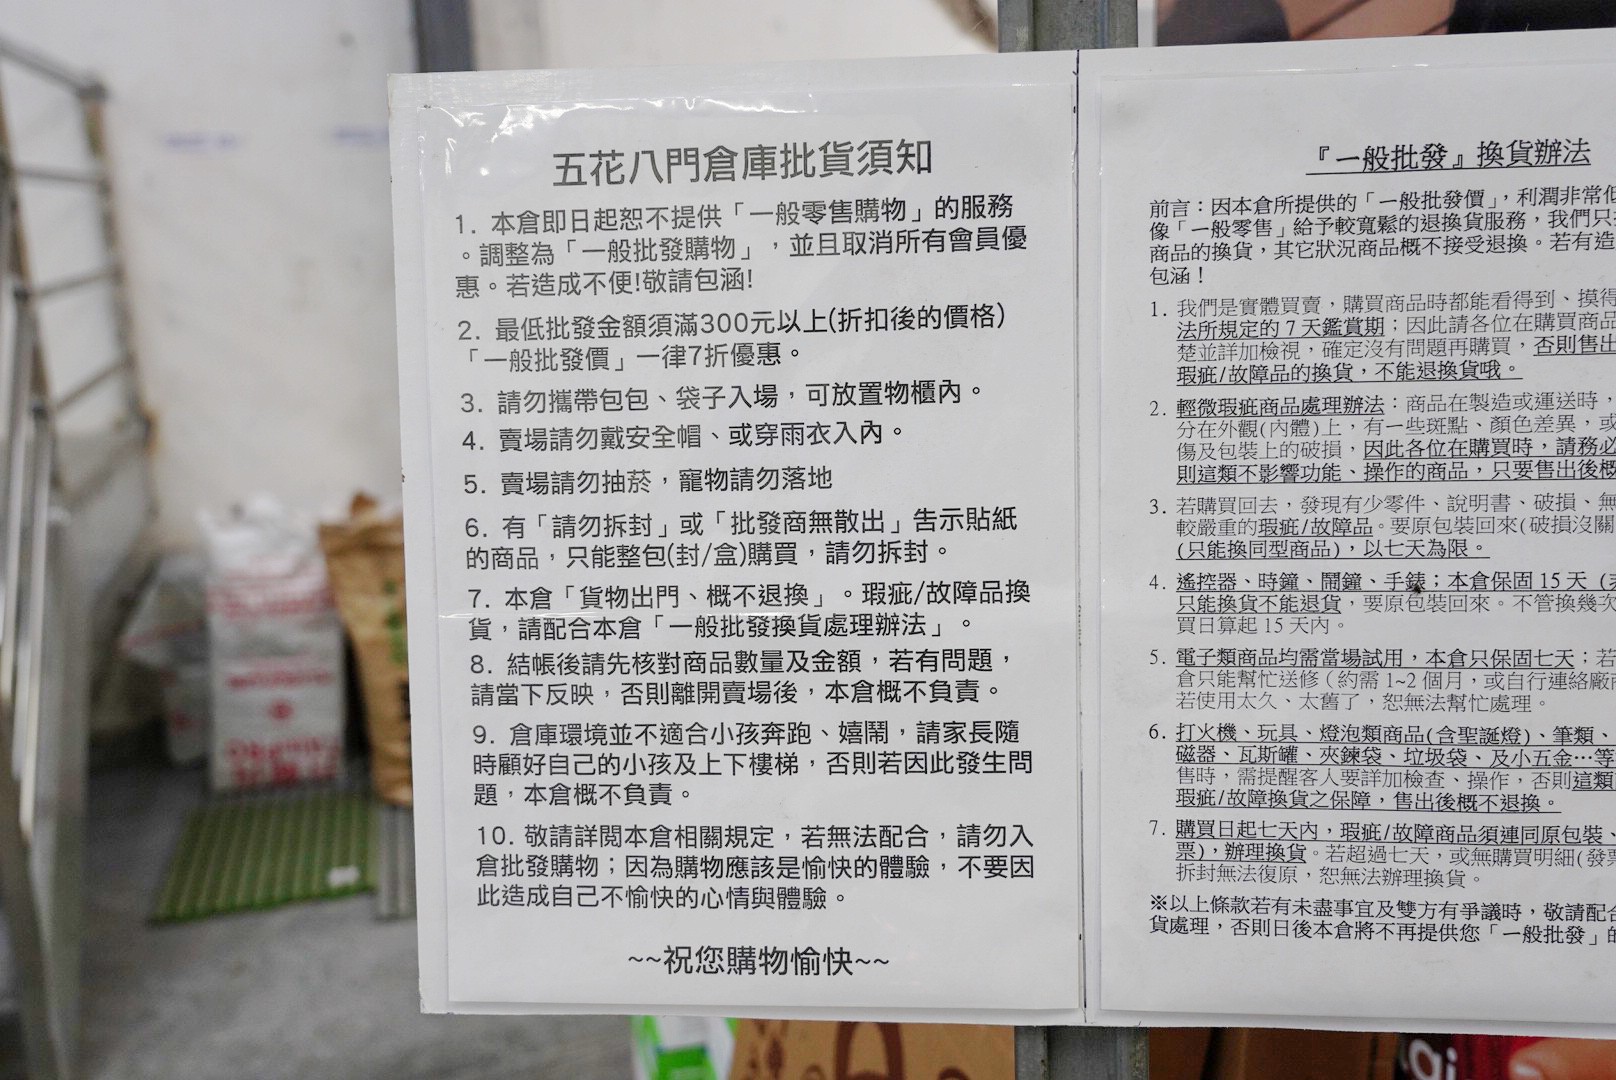 五花八門倉庫批貨須知
1. 本倉即日起恕不提供「一般零售購物」的服務
。調整為「一般批發購物」，並且取消所有會員優
惠。若造成不便!敬請包涵!
2. 最低批發金額須滿300元以上(折扣後的價格)
「一般批發價」一律7折優惠。
3. 請勿攜帶包包、袋子入場，可放置物櫃內。
4. 賣場請勿戴安全帽、或穿雨衣入內。
5. 賣場請勿抽菸，寵物請勿落地
6. 有「請勿拆封」或「批發商無散出」告示貼紙
的商品，只能整包(封/盒)購買，請勿拆封。
7. 本倉「貨物出門、概不退換」。瑕疵/故障品換
貨，請配合本倉「一般批發換貨處理辦法」。
8. 結帳後請先核對商品數量及金額，若有問題，
請當下反映，否則離開賣場後，本倉概不負責。
9. 倉庫環境並不適合小孩奔跑、嬉鬧，請家長隨
時顧好自己的小孩及上下樓梯，否則若因此發生問
題，本倉概不負責。
10. 敬請詳閱本倉相關規定，若無法配合，請勿入
倉批發購物；因為購物應該是愉快的體驗，不要因
此造成自己不愉快的心情與體驗。
~~祝您購物愉快~~
『一般批發』換貨辦法
前言：因本倉所提供的「一般批發價」，利潤非常低
像「一般零售」給予較寬鬆的退換貨服務，我們只
商品的換貨，其它狀況商品概不接受退換。若有造
包涵！
1. 我們是實體買賣，購買商品時都能看得到、摸得
法所規定的 7 天鑑賞期；因此請各位在購買商品
楚並詳加檢視，確定沒有問題再購買，否則售出
瑕疵/故障品的換貨，不能退換貨哦。
2. 輕微瑕疵商品處理辦法：商品在製造或運送時，
分在外觀(內體)上，有一些斑點、顏色差異，或
傷及包裝上的破損，因此各位在購買時，請務必
則這類不影響功能、操作的商品，只要售出後概
3. 若購買回去，發現有少零件、說明書、破損、無
較嚴重的瑕疵/故障品。要原包裝回來(破損沒關
(只能換同型商品)，以七天為限。
4. 遙控器、時鐘、鬧鐘、手錶；本倉保固 15 天（
只能換貨不能退貨，要原包裝回來。不管換幾次
買日算起 15 天內。
5. 電子類商品均需當場試用，本倉只保固七天；若
倉只能幫忙送修（約需 1~2 個月，或自行連絡廠商
若使用太久、太舊了，恕無法幫忙處理。
6. 打火機、玩具、燈泡類商品(含聖誕燈)、筆類、
磁器、瓦斯罐、夾鍊袋、垃圾袋、及小五金…等
售時，需提醒客人要詳加檢查、操作，否則這類
瑕疵/故障換貨之保障，售出後概不退換。
7. 購買日起七天內，瑕疵/故障商品須連同原包裝、
票)，辦理換貨。若超過七天，或無購買明細(發票
拆封無法復原，恕無法辦理換貨。
※以上條款若有未盡事宜及雙方有爭議時，敬請配合
貨處理，否則日後本倉將不再提供您「一般批發」的